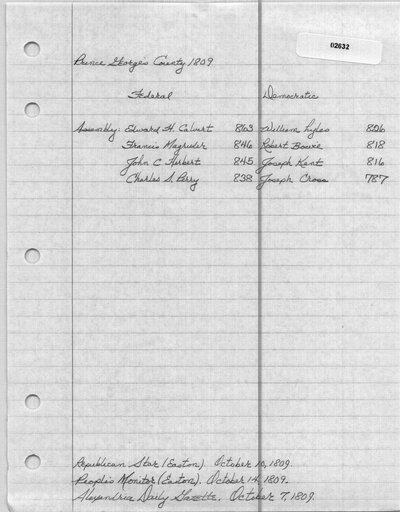 02632
Prince George's County 1809
Federal Democratic
Assembly: Edward H. Calvert 863 William Lyles 856
Francis Magruder 846 Robert Bowie 818
John C Herbert 845 Joseph Kent 816
Charles S. Perry 838 Joseph Cross 787
Republican Star (Easton). October 10, 1809.
People's Monitor (Easton). October 14, 1809.
Alexandria Daily Gazette. October 7, 1809.